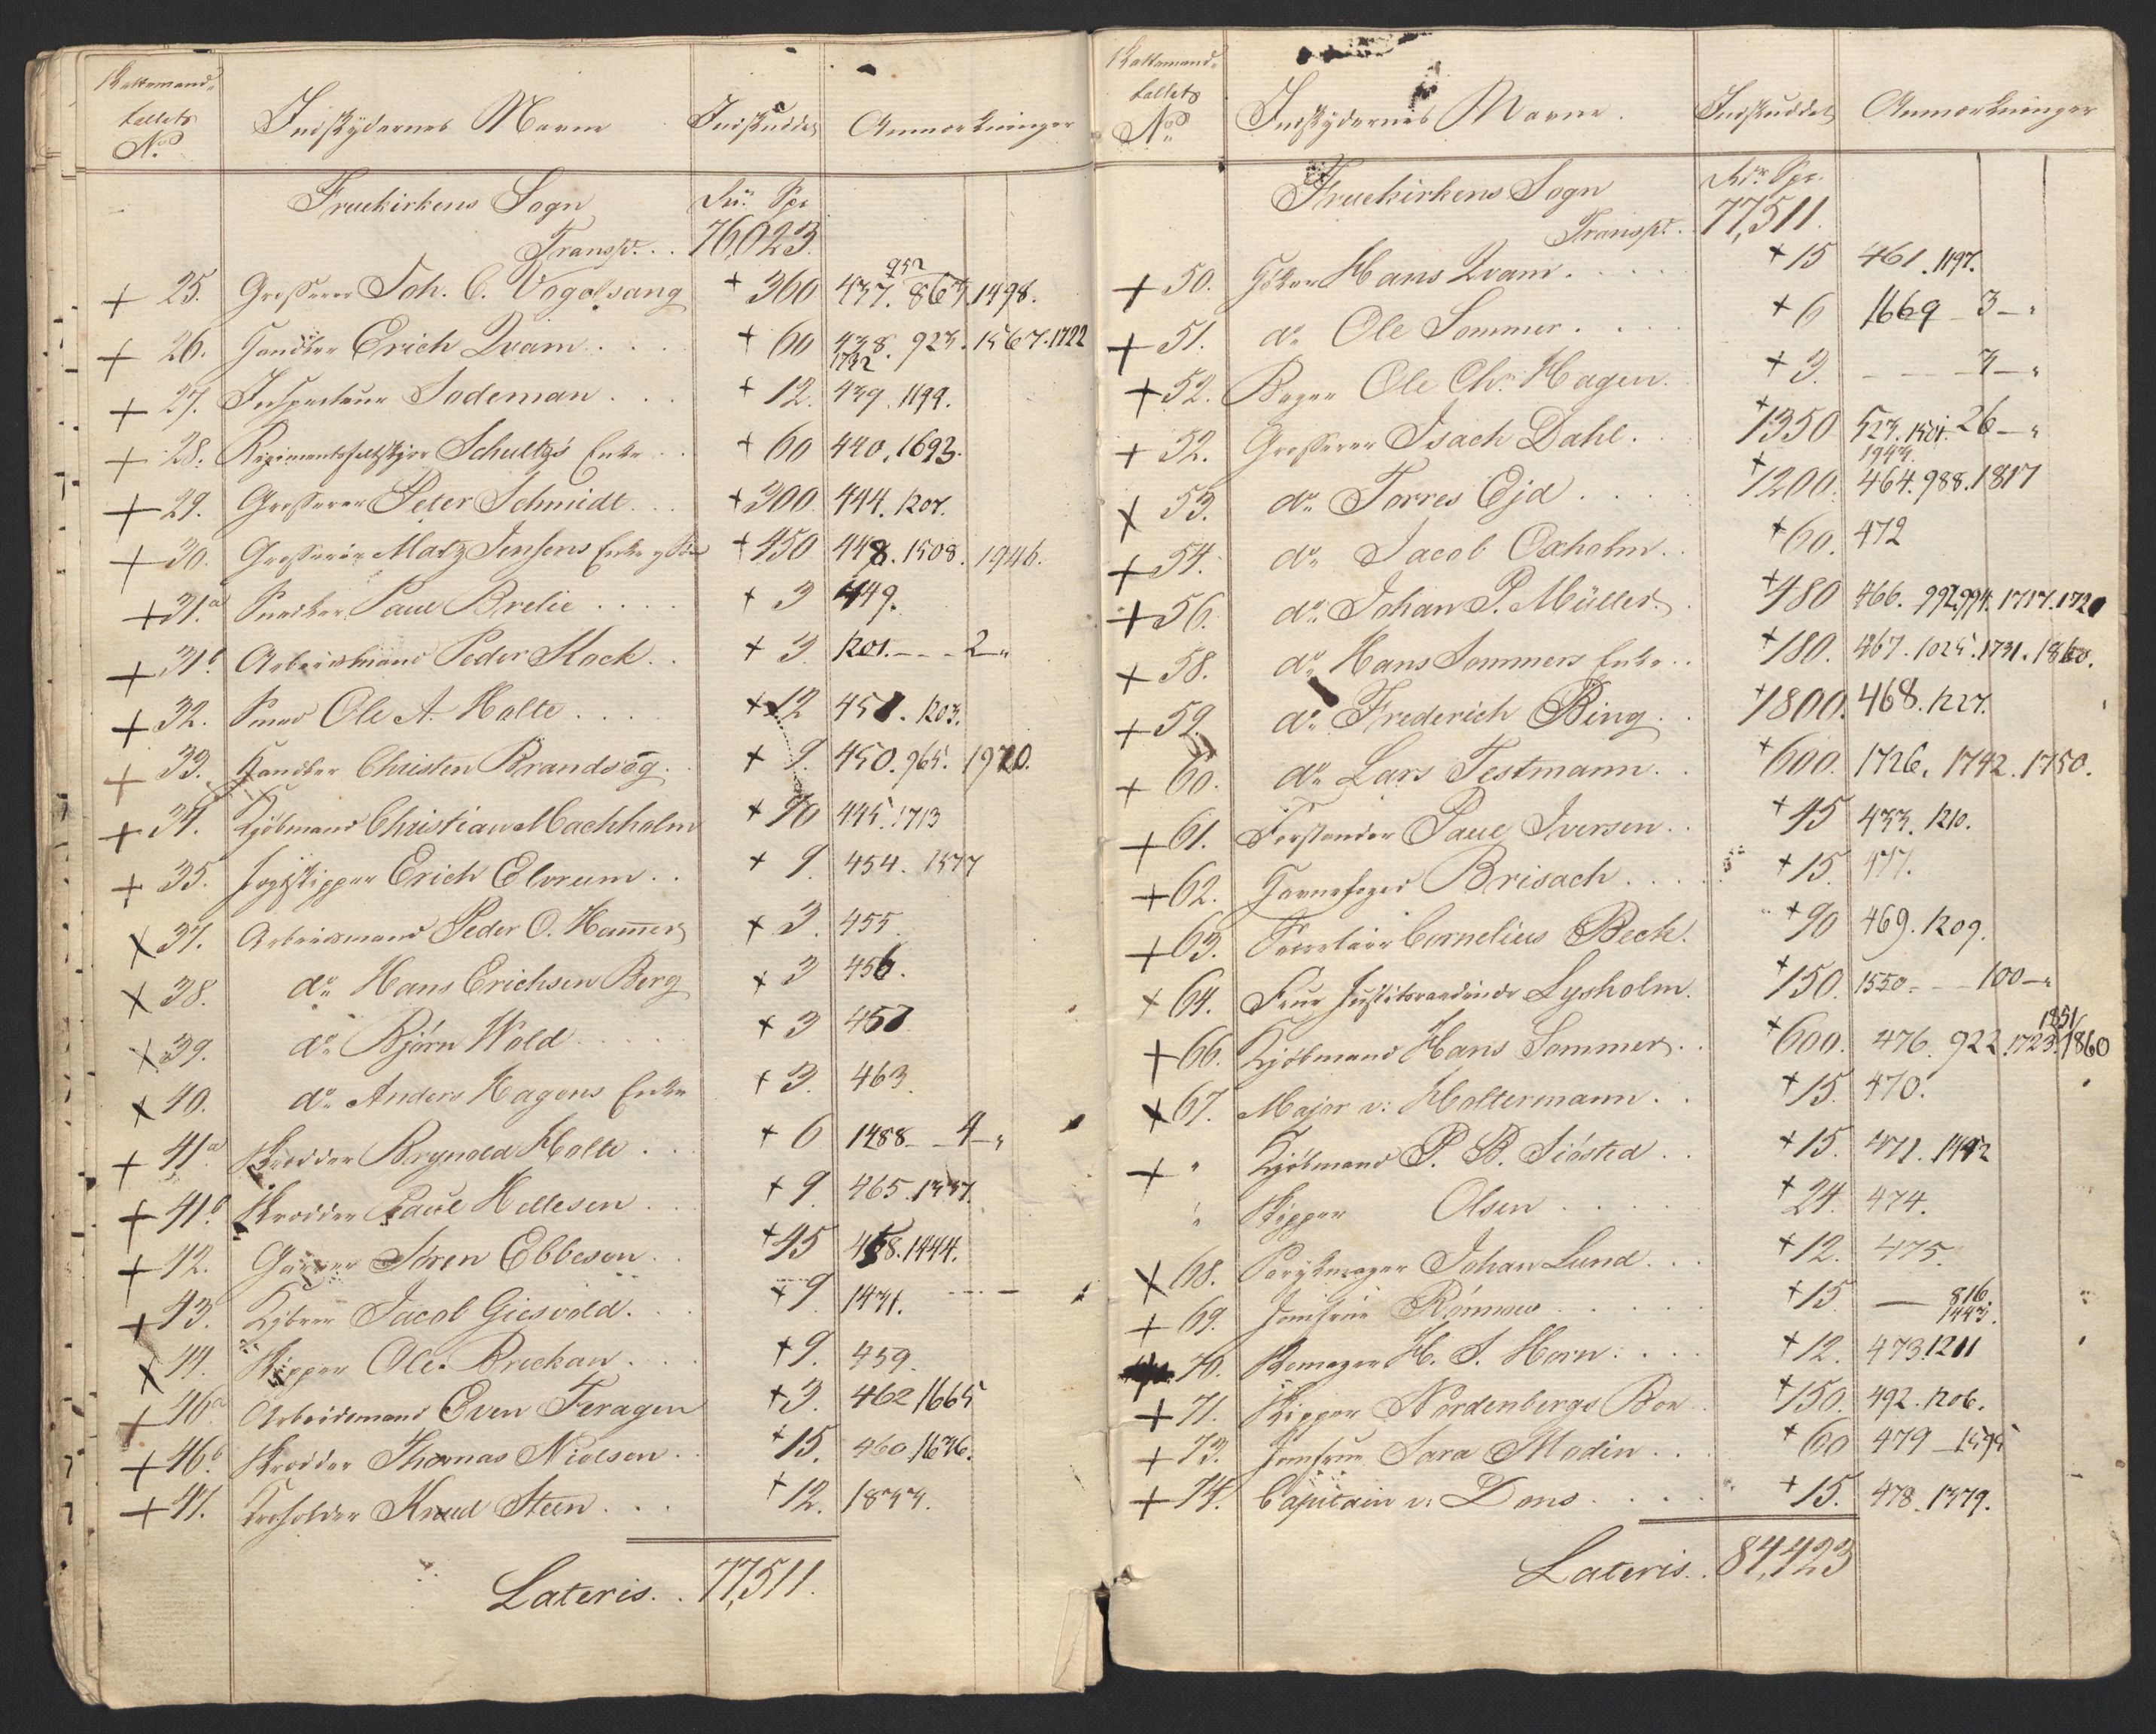 Skattemand-
tallets
No
Indskydernes Navne
Indskuddet
Anmærkninger
Fruekirkens Sogn
Rdr. Spc
Transpt. . . 76,023
+ 25. Grosserer Joh. C. Vogelsang + 360 437. 952 863. 1498.
+ 26. Handler Erich Qvam . . . + 60 438. 923. 1567. 1722
1732
+ 27. Inspecteur Sodeman . . . + 12. 439. 1199.
+ 28. Regimentsfeltskjær Schultz's Enke . . + 60 440. 1693.
+ 29. Grosserer Peter Schmidt . . . + 300. 444. 1207.
+ 30. Grosserer Matz Jensens Enke + 450 448. 1508. 1946.
+ 31.a Snecker Paul Brelie . . . . + 3 449.
+ 31.b Arbeidsmand Peder Kock . . + 3. 1201. - - - 2 - "
+ 32. Smed Ole A. Holte . . . . + 12 451. 1203.
+ 33. Handler Christen Brandsög . + 9. 450. 965. 1920.
+ 34. Kjöbmand Christian Machholm + 90 445. 1713
+ 35. Jagtskipper Erich Elvrum . . + 9. 454. 1577
x 37. Arbeidsmand Peder O. Hammer + 3. 455.
x 38. do Hans Erichsen Berg + 3 456.
x 39. do Bjørn Wold . . . . . + 3 457
x 40. do Anders Hagens Enke + 3. 463.
+ 41.a Skrædder Brynold Holte . . . + 6 1488 - - 4 - "
+ 41.b Skrædder Paul Hellesen . . . + 9. 465. 1337.
+ 42. Garver Sören Ebbesen . . + 45 458. 1444.
+ 43. Jacob Giesvold . . . + 9. 1431. - - - -
x 44. Skipper Ole Brickan . . . + 9. 459.
+ 46.a Arbeidsmand Even Feragen + 3. 462 1665
+ 46.b Skrædder Thomas Nielsen . . + 15. 460. 1676.
+ 47. Knud Steen . . . + 12. 1833.
Lateris . . 77,511.
Skattemand-
tallets
No
Indskydernes Navne.
Indskuddet
Anmærkninger
Fruekirkens Sogn
Rdr. Spc.
Transpt. . 77,511.
+ 50. Höker Hans Qvam . . . . . + 15 461. 1197.
+ 51. do Ole Sommer . . . . + 6 1669 - 3 - "
+ 52. Bager Ole Chr. Hagen . + 3. - - - - 3 - "
+ 52. Grosserer Isach Dahl . . + 1350 523. 1501. 26 - "
1943.
x 53. do Torres Ejd . . . . + 1200. 464. 988. 1817
+ 54. do Jacob Oxholm . . + 60. 472
+ 56. do Johan P. Müller . . + 480 466. 992. 994. 1717. 1720
+ 58. do Hans Sommers Enke . . + 180. 467. 1025. 1731. 1860.
+ 59. do Frederich Bing . . + 1800. 468. 1227.
+ 60. do Lars Testmann . . + 600. 1726. 1742. 1750.
+ 61. Forstander Paul Iversen . . + 45 433. 1210.
+ 62. Havnefoged Brisach . . . . + 15. 477.
+ 63. Secretair Cornelius Beck . + 90 469. 1209.
+ 64. Frue Justitsraadinde Lysholm . + 150. 1550. - - - 100 - "
+ 66. Kjöbmand Hans Sommer . . + 600. 476. 922. 1723. 1851/1860
x 67. Major v: Holtermann . . + 15. 470.
+ " Kjöbmand P. B. Siösted . . + 15. 471. 1442
" Skipper Olsen . . . . . + 24. 474.
x 68. Parykmager Johan Lund . . . + 12. 475.
+ 69. Jomfrue Römmen . . . . . + 15 — 816.
1443.
70. Skomager H. S. Horn . . . . + 12. 473. 1211
+ 71. Skipper Nordenbergs Boe . + 150. 492. 1206.
+ 73. Jomfrue Sara Modin . . . + 60 479 - 1595
+ 74. Capitain v: Dons . . . . + 15. 478. 1379.
Lateris . . 84,423